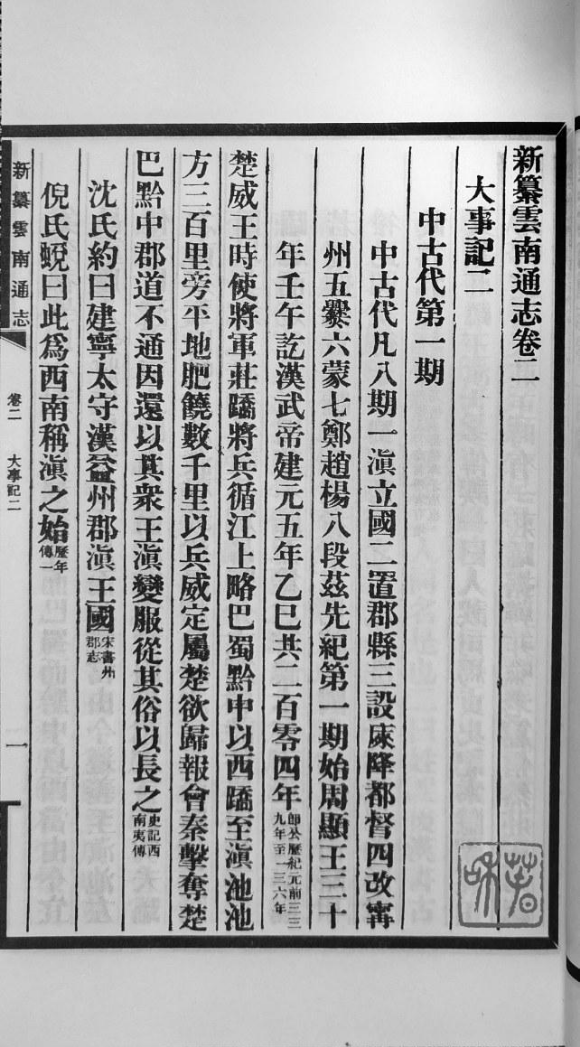 新纂雲南通志卷二
大事記二
中古代第一期
中古代凡八期一滇立國二置郡縣三設庲降都督四改寗
州五爨六蒙七鄭趙楊八段茲先紀第一期始周顯王三十
年壬午訖漢武帝建元五年乙巳共二百零四年即公歷紀元前三三九年至一三六年
楚威王時使將軍莊蹻將兵循江上略巴蜀黔中以西蹻至滇池池
方三百里旁平地肥饒數千里以兵威定屬楚欲歸報會秦擊奪楚
巴黔中郡道不通因還以其衆王滇變服從其俗以長之史記西南夷傳
沈氏約曰建寧太守漢益州郡滇王國宋書州郡志
倪氏蛻曰此爲西南稱滇之始歷年傳一
新纂雲南通志
卷二
大事記二
一